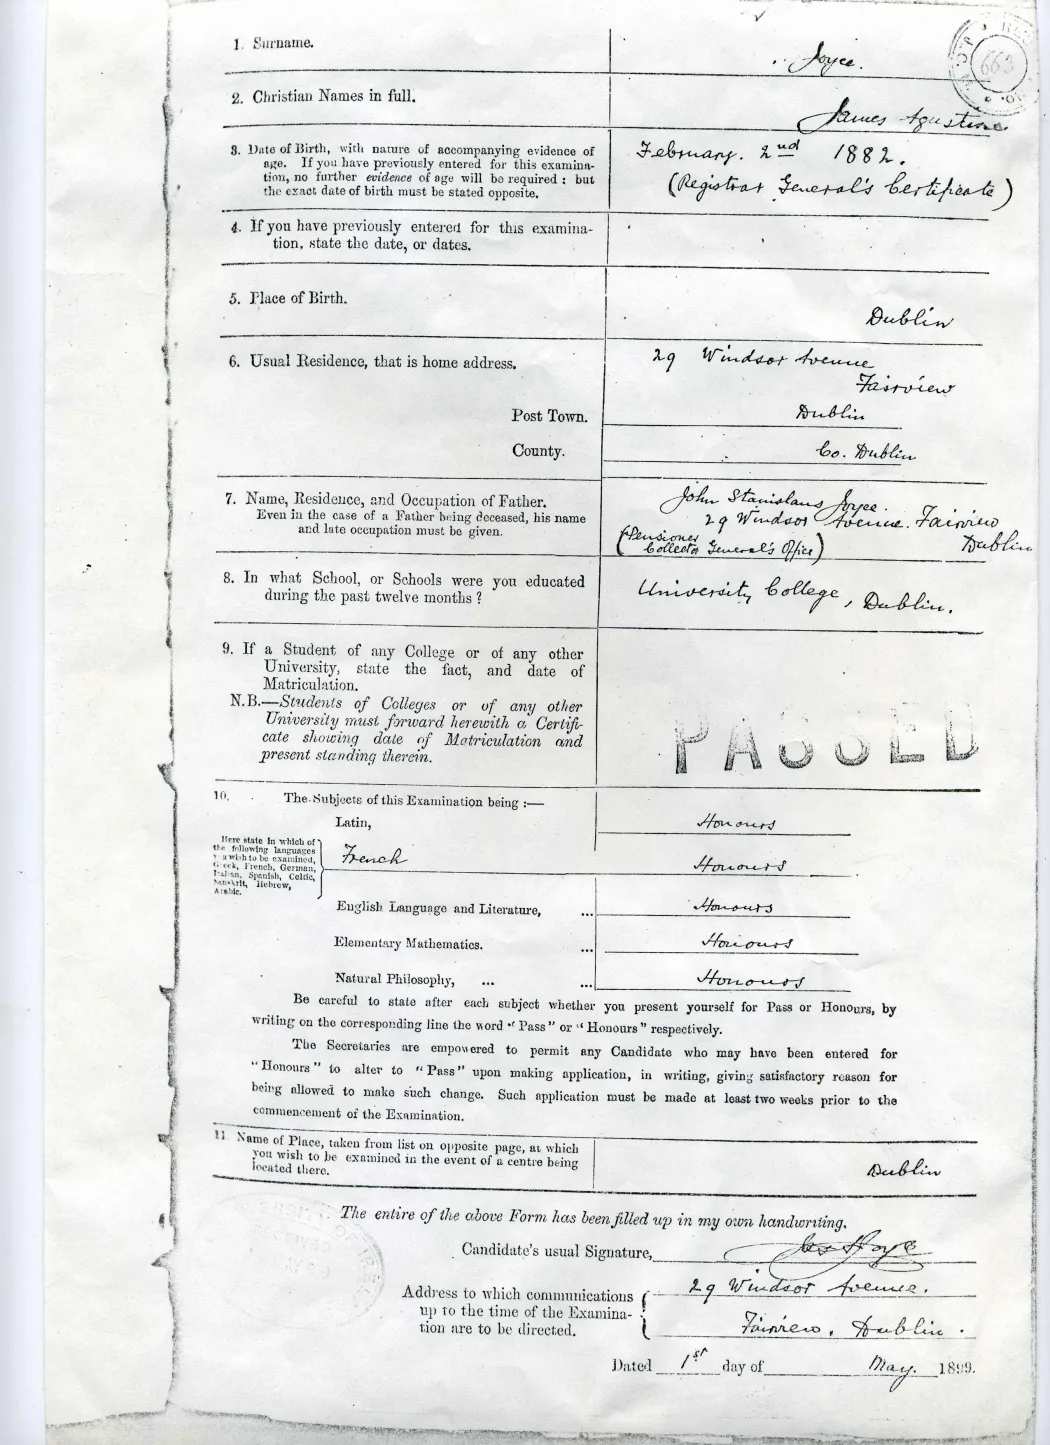 1. Surname.
Joyce.
663
2. Christian Names in full.
James Agustine
3. Date of Birth, with nature of accompanying evidence of
age. If you have previously entered for this examina-
tion, no further evidence of age will be required : but
the exact date of birth must be stated opposite.
February. 2nd 1882.
(Registrar General's Certificate)
4. If you have previously entered for this examina-
tion, state the date, or dates.
5. Place of Birth.
Dublin
6. Usual Residence, that is home address.
29 Windsor Avenue
Fairview
Post Town.
Dublin
County.
Co. Dublin
7. Name, Residence, and Occupation of Father.
Even in the case of a Father being deceased, his name
and late occupation must be given.
John Stanislaus Joyce.
29 Windsor Avenue. Fairview
Dublin
(Pensioner
Collector General's Office)
8. In what School, or Schools were you educated
during the past twelve months ?
University College, Dublin.
9. If a Student of any College or of any other
University, state the fact, and date of
Matriculation.
N.B.—Students of Colleges or of any other
University must forward herewith a Certifi-
cate showing date of Matriculation and
present standing therein.
PASSED
10. The Subjects of this Examination being :—
Latin,
Honours
Here state in which of
the following languages
you wish to be examined,
Greek, French, German,
Italian, Spanish, Celtic,
Sanskrit, Hebrew,
Arabic.
French
Honours
English Language and Literature, ...
Honours
Elementary Mathematics. ...
Honours
Natural Philosophy, ... ...
Honours
Be careful to state after each subject whether you present yourself for Pass or Honours, by
writing on the corresponding line the word "Pass" or "Honours" respectively.
The Secretaries are empowered to permit any Candidate who may have been entered for
"Honours" to alter to "Pass" upon making application, in writing, giving satisfactory reason for
being allowed to make such change. Such application must be made at least two weeks prior to the
commencement of the Examination.
11. Name of Place, taken from list on opposite page, at which
you wish to be examined in the event of a centre being
located there.
Dublin
The entire of the above Form has been filled up in my own handwriting.
Candidate's usual Signature,
Jas A Joyce
Address to which communications
up to the time of the Examina-
tion are to be directed.
29 Windsor Avenue.
Fairview, Dublin.
Dated 1st day of May. 1899.